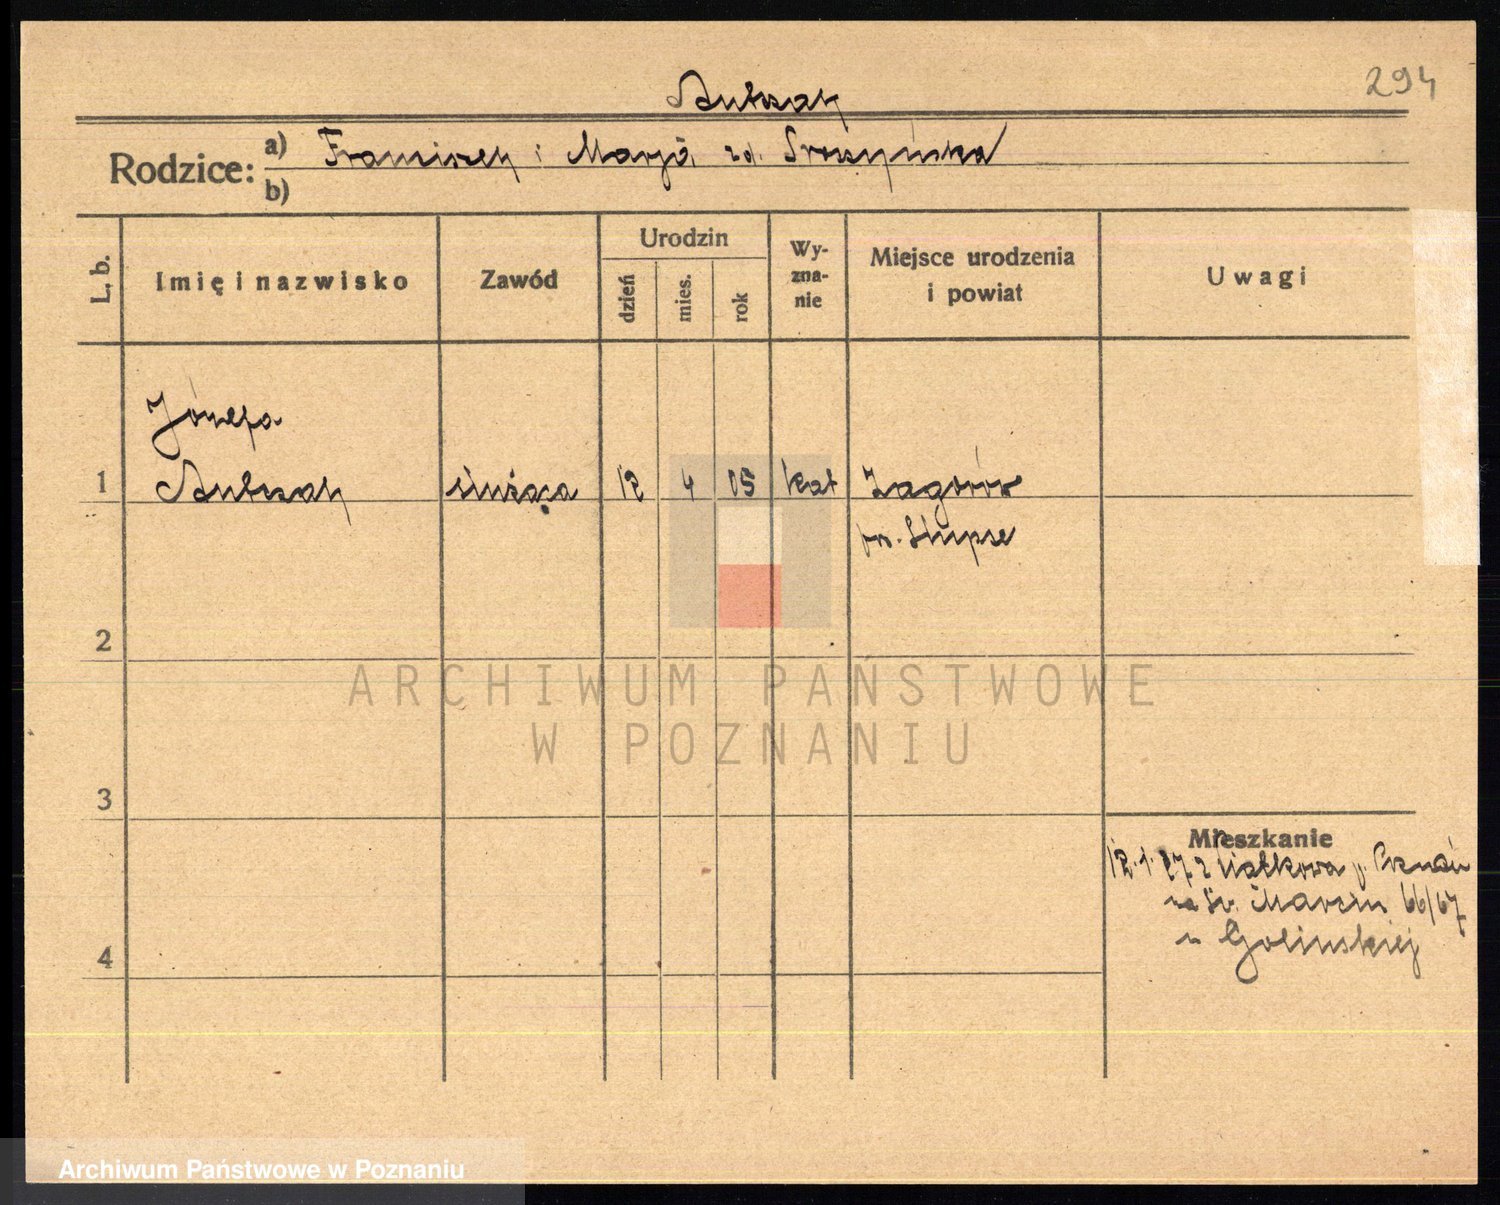 294
Rodzice: a) Franciszek i Marja zd.
b)
L. b.
Imię i nazwisko
Zawód
Urodzin
dzień
mies.
rok
Wy-
zna-
nie
Miejsce urodzenia
i powiat
Uwagi
Józefa
1 służąca 12 4 05 kat Zagorów
pow. Słupce
2
ARCHIWUM PAŃSTWOWE
W POZNANIU
3
Mieszkanie
12.1.27 z p. Poznań
na Św. Marcin 66/67
u Golinskiej
4
Archiwum Państwowe w Poznaniu